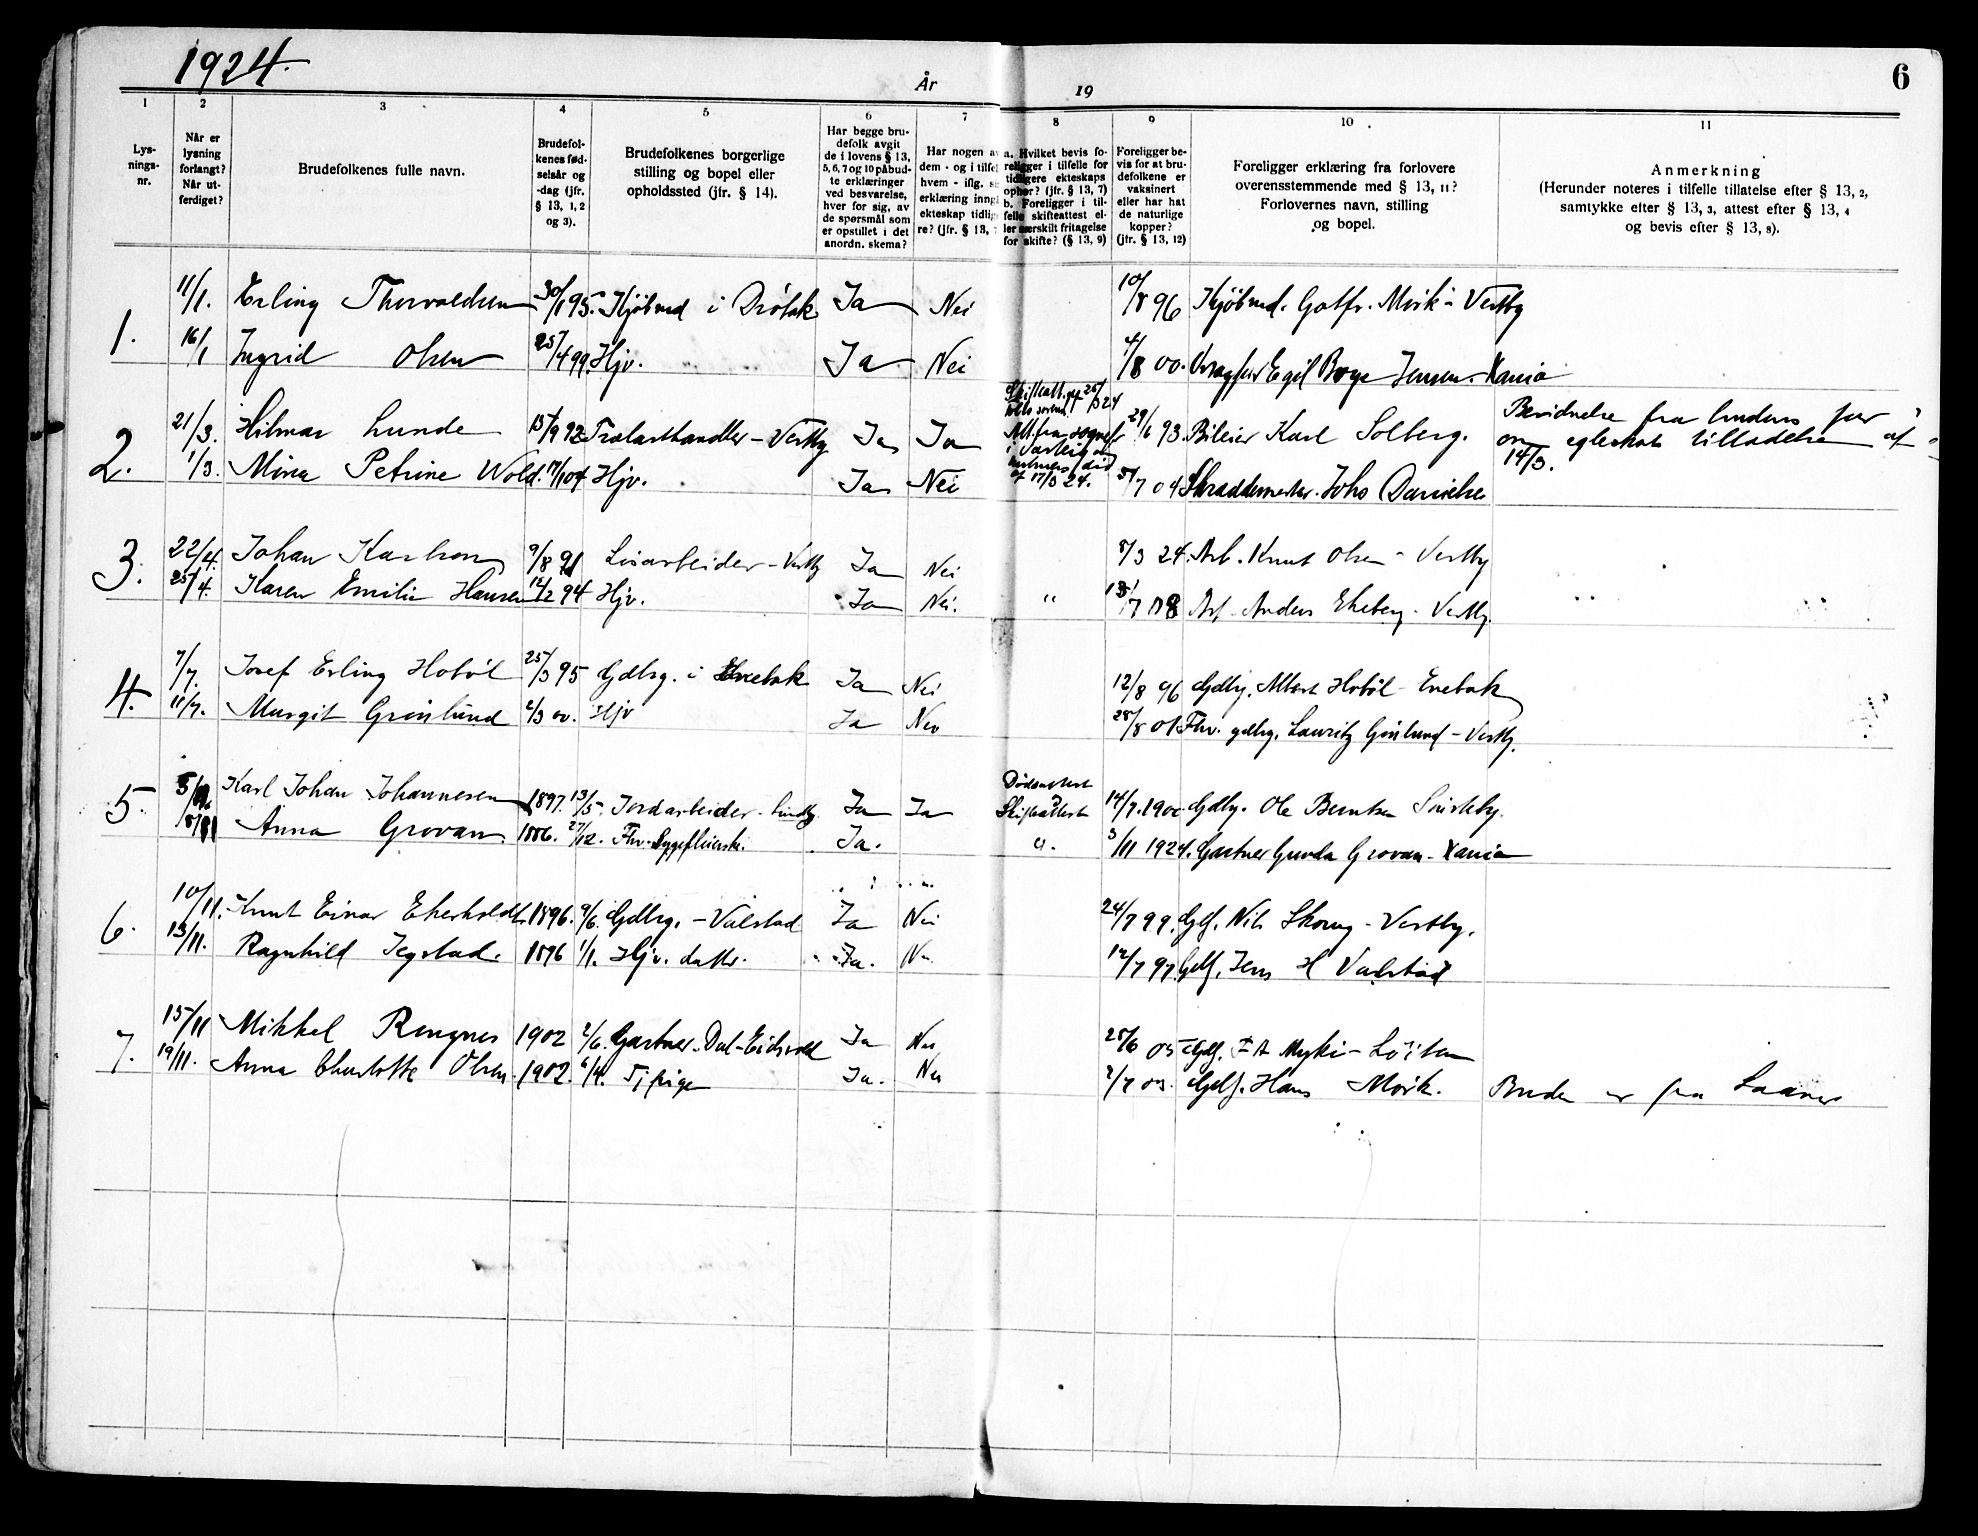 1924.
År
19
6
1
2
3
4
5
6
7
8
9
10
11
Lys-
nings-
nr.
Når er
lysning
forlangt?
Når ut-
ferdiget?
Brudefolkenes fulle navn.
Brudefol-
kenes fød-
selsår og
-dag (jfr.
§ 13, 1, 2
og 3).
Brudefolkenes borgerlige
stilling og bopel eller
opholdssted (jfr. § 14).
Har begge bru-
defolk avgit
de i lovens § 13,
5, 6, 7 og 10 påbud-
te erklæringer
ved besvarelse,
hver for sig, av
de spørsmål som
er opstillet i det
anordn. skema?
Har nogen a
dem - og i tilfel
hvem - iflg.
erklæring inng
ekteskap tidlig
re? (jfr. § 13,
a. Hvilket bevis fo-
religger i tilfelle for
tidligere ekteskaps
ophør? (jfr. § 13, 7)
b. Foreligger i til-
felle skifteattest el-
ler særskilt fritagelse
for skifte? (§ 13, 9)
Foreligger be-
vis for at bru-
defolkene er
vaksinert
eller har hat
de naturlige
kopper?
(jfr. § 13, 12)
Foreligger erklæring fra forlovere
overensstemmende med § 13, 11?
Forlovernes navn, stilling
og bopel.
Anmerkning
(Herunder noteres i tilfelle tillatelse efter § 13, 2,
samtykke efter § 13, 3, attest efter § 13, 4
og bevis efter § 13, 8).
1. 11/1. Erling Thorvaldsen 30/1 95. Kjøbmd i Drøbak Ja Nei 10/8 96 Kjøbmd. Gotfr. Mørk - Vestby
16/1 Ingrid Olsen 25/4 99. Hjv. Ja Nei 4/8 00. Egil Boye Jensen - Kania
2. 21/3. Hilmar Lunde 15/9 92 Trælasthandler - Vestby Ja Ja 29/6 93. Bileier Karl Solberg. fra
14/3.
1/3. Mina Petrine Wold. 17/1 04 Hjv. Ja Nei 17/3 24. 5/7 04 Skræddermester Johs Danielsen
3. 22/4. Johan Karlsen 9/8 91 - Vestby Ja Nei 8/3 24. Arb. Knut Olsen - Vestby
25/4. Karen Emilie Hansen 12/2 94 Hjv. Ja Nei. " Anders Ekeberg - Vestby.
4. 7/7. Josef Erling Hobøl 25/3 95 Gdbrg. i Enebak Ja Nei 12/8 96 Gdbrg. Albert Hobøl - Enebak
11/7. Margit Grønlund 2/3 00. Hjv Ja Nei 28/8 01. Fhv. gdbrg. Lauritz Grønlund - Vestby.
5. Karl Johan Johannesen 1897. 13/5. Jordarbeider - Ja Ja Dødsattest
Skifteattest 14/7. 1900 Gdbrg. Ole Berntsen
Anna Grovan 1886. 27/12. Fhv. Sygepleierske. Ja. " 3/11 1924. Gartner Gunda Grovan - Kania
6. 10/11. Knut Einar Ekerholdt. 1896. 9/6. Gdbrg. - Vålstad Ja Nei 24/7 99. Gdb. Nils Skoug - Vestby.
13/11. Ragnhild Jegstad. 1896 1/1. Hjv. datter. Ja. Nei 12/7 97. Gdb. Jens H Valstad
7. 15/11 Mikkel Rengnes 1902 2/6. Gartner - Dal - Eidsvold Ja Nei 25/6 05 Gdb. - Løiten
19/11. Anna Charlotte Olsen. 1902. 6/4. Tj.pige Ja. Nei 2/7 03. Gdb. Hans Mørk. Bruden er fra Laaner